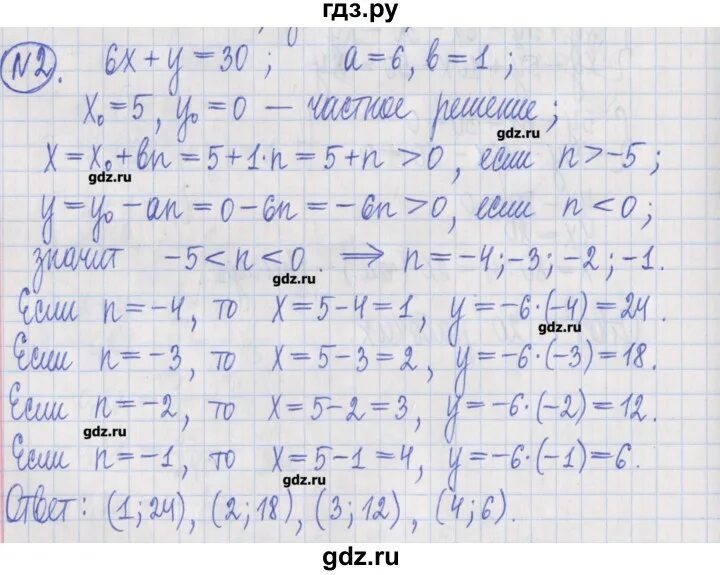 гдз.ру
№2. 6x+y=30; a=6, в=1;
x₀=5, y₀=0 — частное решение;
gdz.ru
x=x₀+вn=5+1·n=5+n>0, если n>-5;
gdz.ru
y=y₀-an=0-6n=-6n>0, если n<0;
значит -5<n<0. ⟹ n=-4;-3;-2;-1.
gdz.ru
Если n=-4, то x=5-4=1, y=-6·(-4)=24.
gdz.ru
Если n=-3, то x=5-3=2, y=-6·(-3)=18.
Если n=-2, то x=5-2=3, y=-6·(-2)=12.
gdz.ru
Если n=-1, то x=5-1=4, y=-6·(-1)=6.
gdz.ru
Ответ: (1;24), (2;18), (3;12), (4;6).
gdz.ru